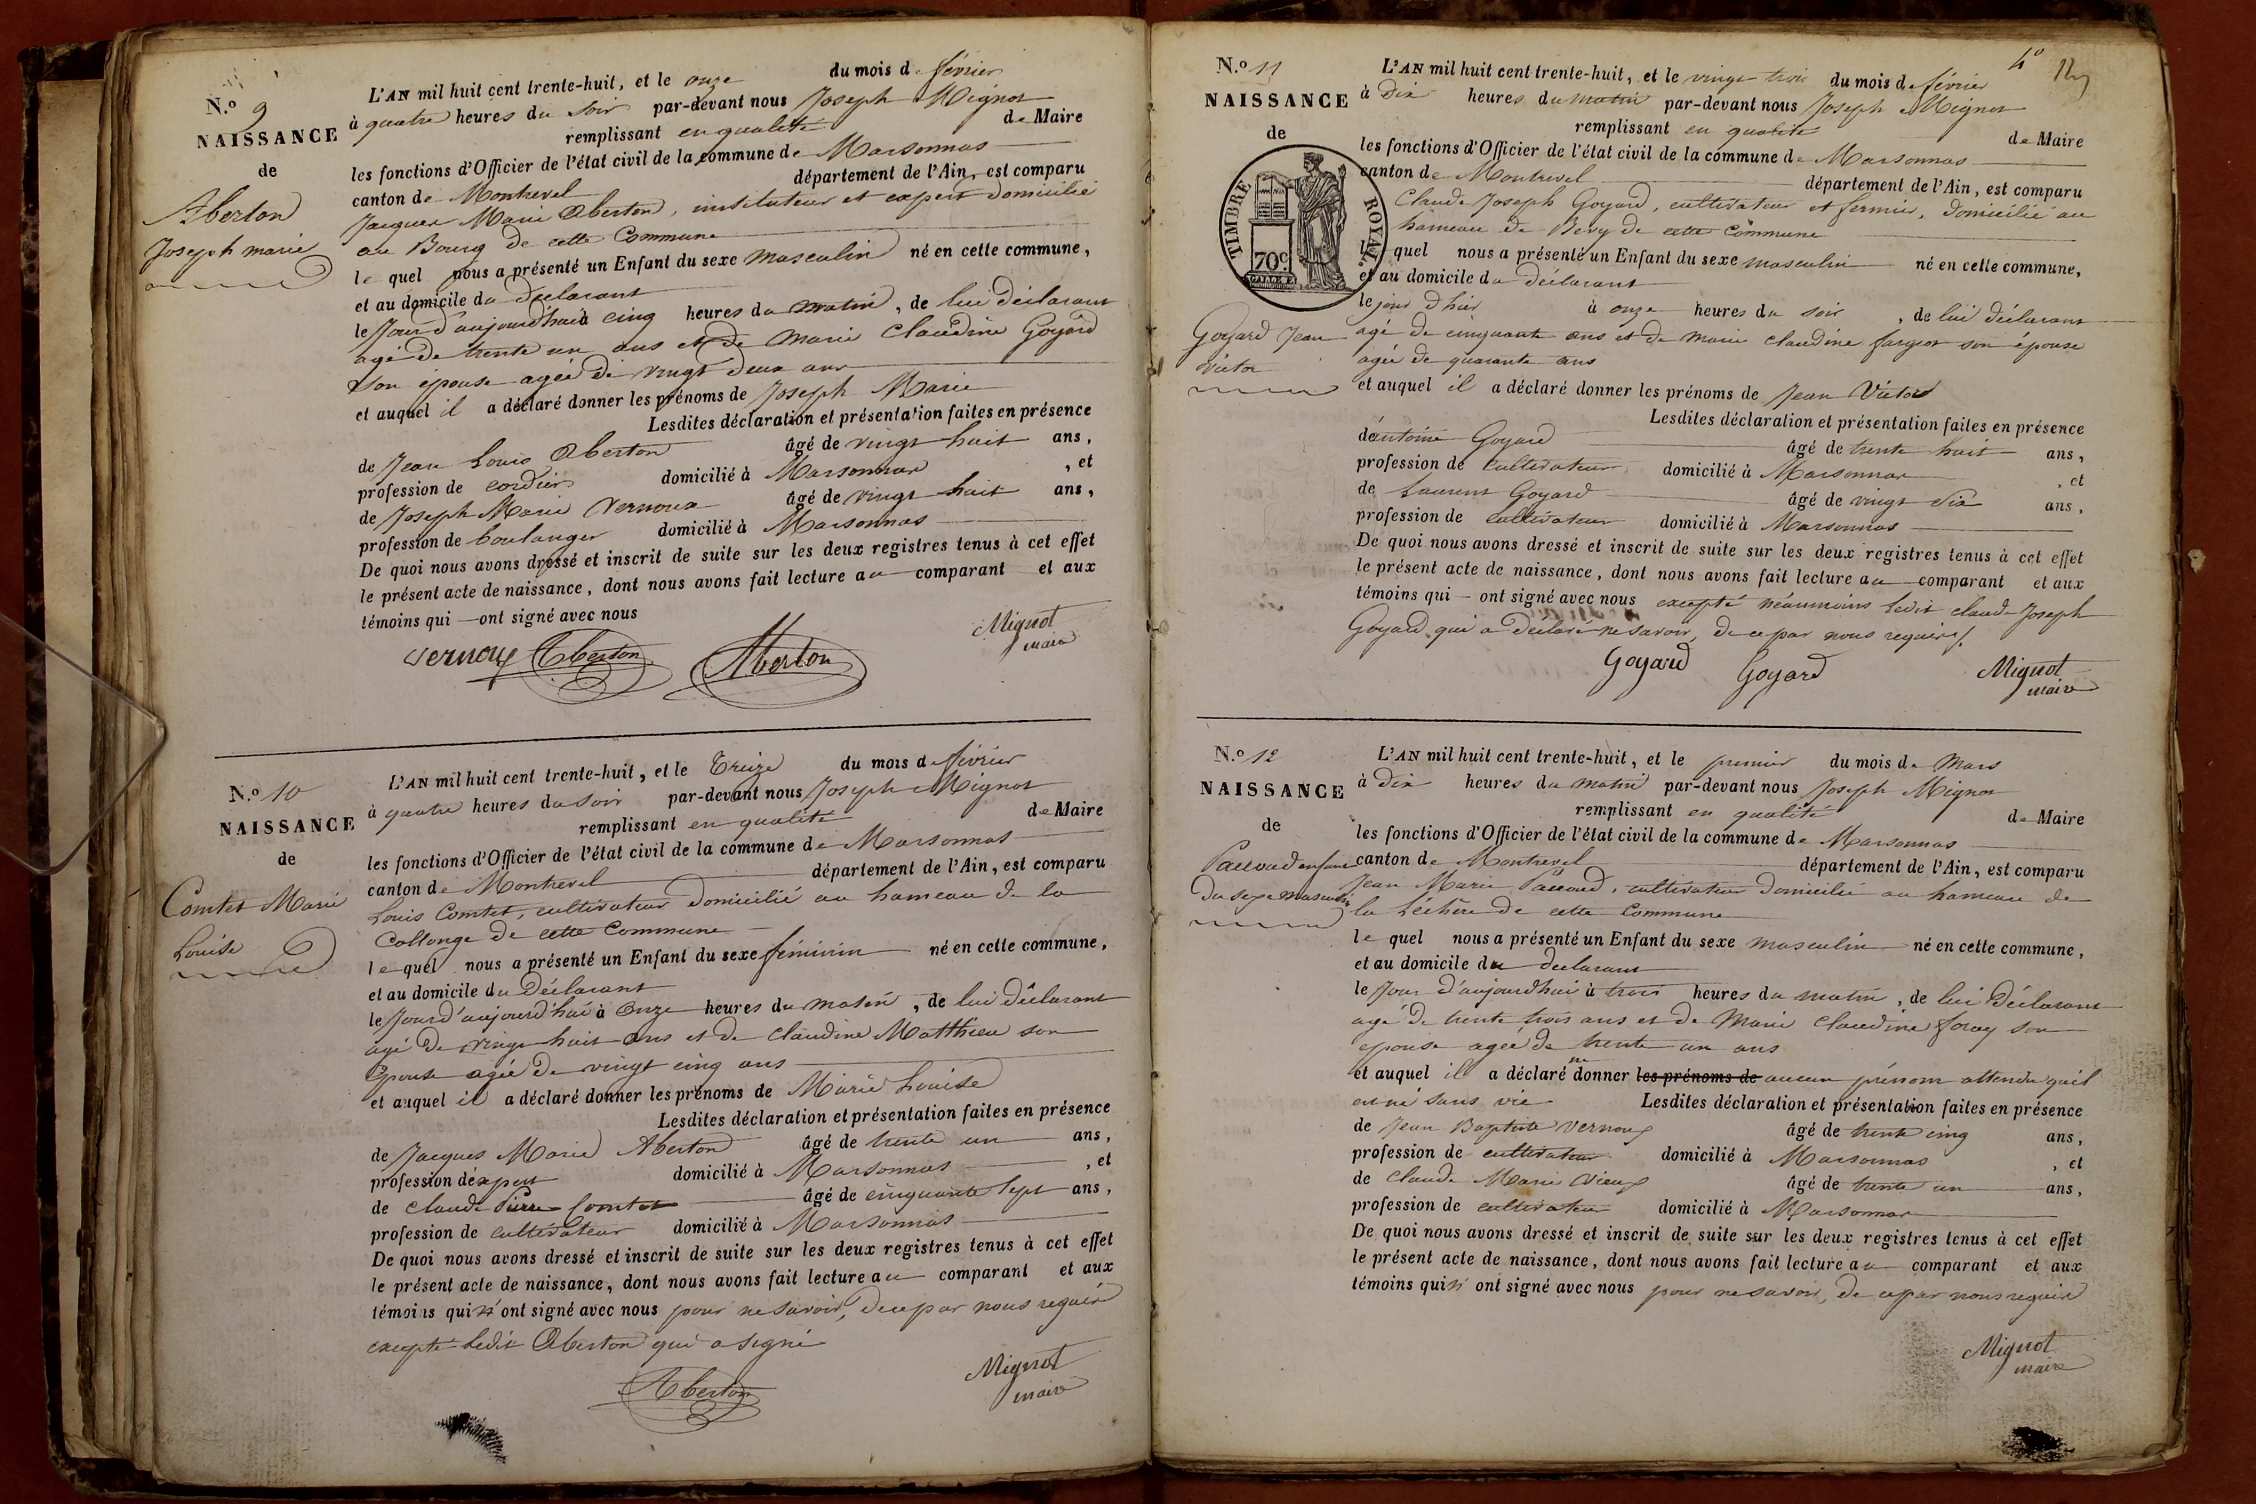 N.º 9
NAISSANCE
de
Aberton
Joseph marie
L'AN mil huit cent trente-huit, et le onze du mois de février
à quatre heures du soir par-devant nous Joseph Mignot
remplissant en qualité de Maire
les fonctions d'Officier de l'état civil de la commune de Marsonnas
canton de Montrevel département de l'Ain, est comparu
Jacques Marie Aberton, instituteur et expert domicilié
au Bourg de cette Commune
le quel nous a présenté un Enfant du sexe masculin né en cette commune,
et au domicile du déclarant
le Jour d'aujourd'hui à cinq heures du matin, de lui déclarant
agé de trente un ans et de Marie Claudine Goyard
son épouse agée de vingt deux ans
et auquel il a déclaré donner les prénoms de Joseph Marie
Lesdites déclaration et présentation faites en présence
de Jean Louis Aberton âgé de vingt huit ans,
profession de cordier domicilié à Marsonnas, et
de Joseph Marie Vernoux âgé de vingt huit ans,
profession de boulanger domicilié à Marsonnas
De quoi nous avons dressé et inscrit de suite sur les deux registres tenus à cet effet
le présent acte de naissance, dont nous avons fait lecture au comparant et aux
témoins qui ont signé avec nous
Vernoux Aberton Aberton Mignot
maire
N.º 10
NAISSANCE
de
Comtet Marie
Louise
L'AN mil huit cent trente-huit, et le Treize du mois de février
à quatre heures du soir par-devant nous Joseph Mignot
remplissant en qualité de Maire
les fonctions d'Officier de l'état civil de la commune de Marsonnas
canton de Montrevel département de l'Ain, est comparu
Louis Comtet, cultivateur domicilié au hameau de la
Collonge de cette Commune
le quel nous a présenté un Enfant du sexe féminin né en cette commune,
et au domicile du Déclarant
le Jour d'aujourd'hui à Onze heures du matin, de lui déclarant
agé de vingt huit ans et de Claudine Matthieu son
Epouse agée de vingt cinq ans
et auquel il a déclaré donner les prénoms de Marie Louise
Lesdites déclaration et présentation faites en présence
de Jacques Marie Aberton âgé de trente un ans,
profession d'expert domicilié à Marsonnas, et
de Claude Pierre Comtet âgé de cinquante sept ans,
profession de cultivateur domicilié à Marsonnas
De quoi nous avons dressé et inscrit de suite sur les deux registres tenus à cet effet
le présent acte de naissance, dont nous avons fait lecture au comparant et aux
témoins qui n'ont signé avec nous pour ne savoir, de ce par nous requis
excepté ledit Aberton qui a signé
Aberton Mignot
maire
4º
N.º 11
NAISSANCE
de
TIMBRE ROYAL.
70 C
Goyard Jean
Victor
L'AN mil huit cent trente-huit, et le vingt trois du mois de février
à Dix heures du matin par-devant nous Joseph Mignot
remplissant en qualité de Maire
les fonctions d'Officier de l'état civil de la commune de Marsonnas
canton de Montrevel département de l'Ain, est comparu
Claude Joseph Goyard, cultivateur et fermier, domicilié au
hameau de Bevy de cette Commune
le quel nous a présenté un Enfant du sexe masculin né en cette commune,
et au domicile du déclarant
le jour d'hier à onze heures du soir, de lui déclarant
agé de cinquante ans et de Marie Claudine fargeot son épouse
agée de quarante ans
et auquel il a déclaré donner les prénoms de Jean Victor
Lesdites déclaration et présentation faites en présence
d'antoine Goyard âgé de trente huit ans,
profession de cultivateur domicilié à Marsonnas, et
de Laurent Goyard âgé de vingt Six ans,
profession de cultivateur domicilié à Marsonnas
De quoi nous avons dressé et inscrit de suite sur les deux registres tenus à cet effet
le présent acte de naissance, dont nous avons fait lecture au comparant et aux
témoins qui ont signé avec nous excepté néanmoins ledit Claude Joseph
Goyard qui a déclaré ne savoir, de ce par nous requis
Goyard Goyard Mignot
maire
N.º 12
NAISSANCE
de
Paccoud enfant
du sexe masculin
L'AN mil huit cent trente-huit, et le premier du mois de Mars
à Dix heures du matin par-devant nous Joseph Mignot
remplissant en qualité de Maire
les fonctions d'Officier de l'état civil de la commune de Marsonnas
canton de Montrevel département de l'Ain, est comparu
Jean Marie Paccoud, cultivateur domicilié au hameau de
la Léchère de cette Commune
le quel nous a présenté un Enfant du sexe masculin né en cette commune,
et au domicile du déclarant
le Jour d'aujourd'hui à trois heures du matin, de lui Déclarant
agé de trente trois ans et de Marie Claudine foray son
epouse agée de trente un ans
et auquel il a déclaré ne donner les prénoms de aucun prénom attendu qu'il
est né sans vie Lesdites déclaration et présentation faites en présence
de Jean Baptiste Vernoux âgé de trente cinq ans,
profession de cultivateur domicilié à Marsonnas, et
de Claude Marie Vieux âgé de trente un ans,
profession de cultivateur domicilié à Marsonnas
De quoi nous avons dressé et inscrit de suite sur les deux registres tenus à cet effet
le présent acte de naissance, dont nous avons fait lecture au comparant et aux
témoins qui n'ont signé avec nous pour ne savoir, de ce par nous requis
Mignot
maire